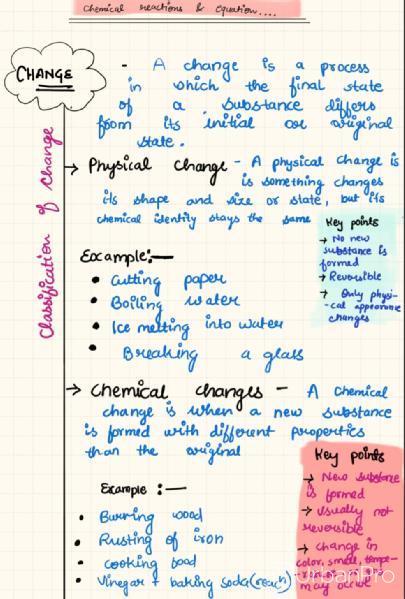 Chemical reactions & Equation....
CHANGE
- A change is a process
in which the final state
of a substance differs
from its initial or original
state.
Classification of Change
→ Physical Change - A physical change is
is something changes
its shape and size or state, but its
chemical identity stays the same
Key points
→ No new
substance is
formed
→ Reversible
→ Only physi-
cal appearance
changes
Example:—
• Cutting paper
• Boiling water
• Ice melting into water
• Breaking a glass
→ Chemical changes - A Chemical
change is when a new substance
is formed with different properties
than the original
Key points
→ New substance
is formed
→ Usually not
reversible
→ change in
color, smell, tempe-
may occur
Example :—
• Burning wood
• Rusting of iron
• cooking food
• Vinegar + baking soda (react)
UrbanPro